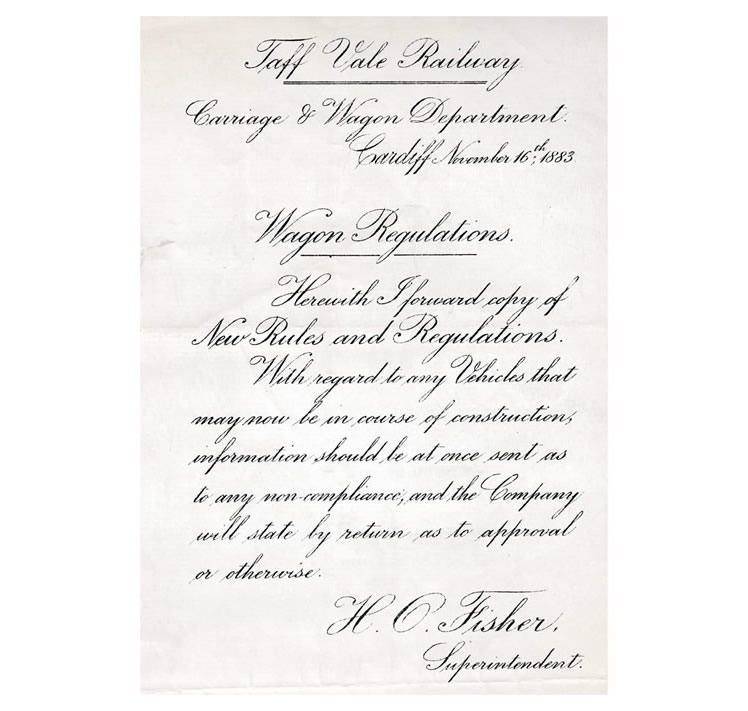 Taff Vale Railway
Carriage & Wagon Department.
Cardiff November 16th, 1883.
Wagon Regulations.
Herewith I forward copy of
New Rules and Regulations.
With regard to any Vehicles that
may now be in course of construction,
information should be at once sent as
to any non-compliance, and the Company
will state by return as to approval
or otherwise.
H. O. Fisher,
Superintendent.